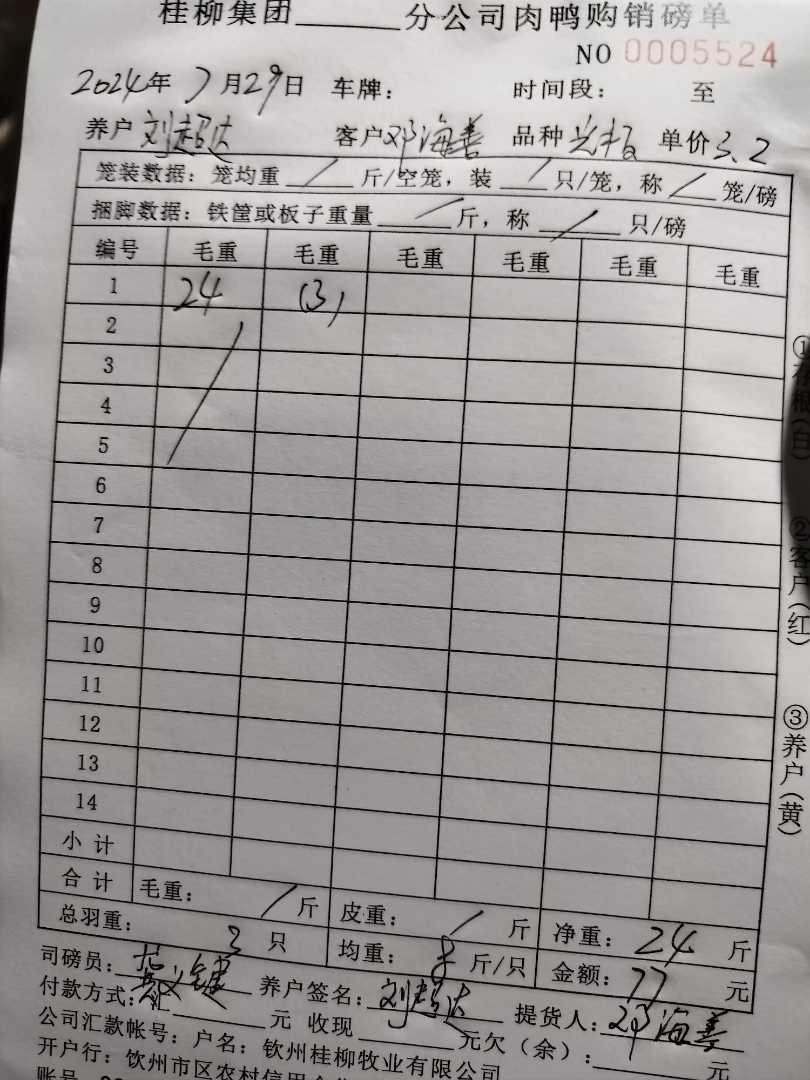 桂柳集团______分公司肉鸭购销磅单
NO 0005524
2024年 7月29日 车牌: 时间段: 至
养户 刘超达 客户 邓海善 品种 单价 3.2
笼装数据: 笼均重 / 斤/空笼, 装 / 只/笼, 称 / 笼/磅
捆脚数据: 铁筐或板子重量 / 斤, 称 / 只/磅
编号 毛重 毛重 毛重 毛重 毛重 毛重
1 24 (3)
2
3
4
5
6
7
8
9
10
11
12
13
14
小计
合计 毛重: / 斤 皮重: / 斤 净重: 24 斤
总羽重: 3 只 均重: 斤/只 金额: 77 元
司磅员: 养户签名: 刘超达 提货人: 邓海善
付款方式: 汇____元 收现____元欠(余):____元
公司汇款帐号: 户名: 钦州桂柳牧业有限公司
开户行: 钦州市区农村信用合
账号
②客户(红)
③养户(黄)